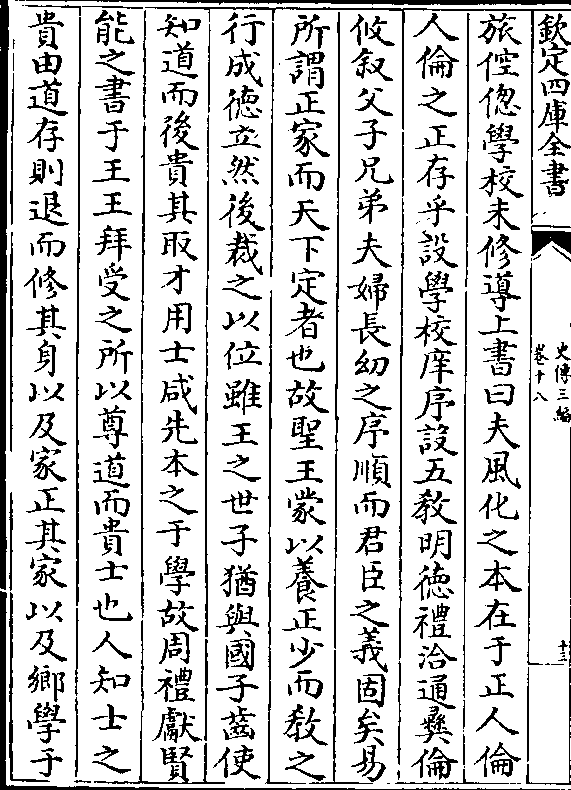 欽定四庫全書
史傳三編
卷十八
十三
旅倥偬學校未修導上書曰夫風化之本在于正人倫
人倫之正存乎設學校庠序設五教明德禮洽通彝倫
攸敘父子兄弟夫婦長幼之序順而君臣之義固矣易
所謂正家而天下定者也故聖王蒙以養正少而教之
行成德立然後裁之以位雖王之世子猶與國子齒使
知道而後貴其取才用士咸先本之于學故周禮獻賢
能之書于王王拜受之所以尊道而貴士也人知士之
貴由道存則退而修其身以及家正其家以及鄉學于